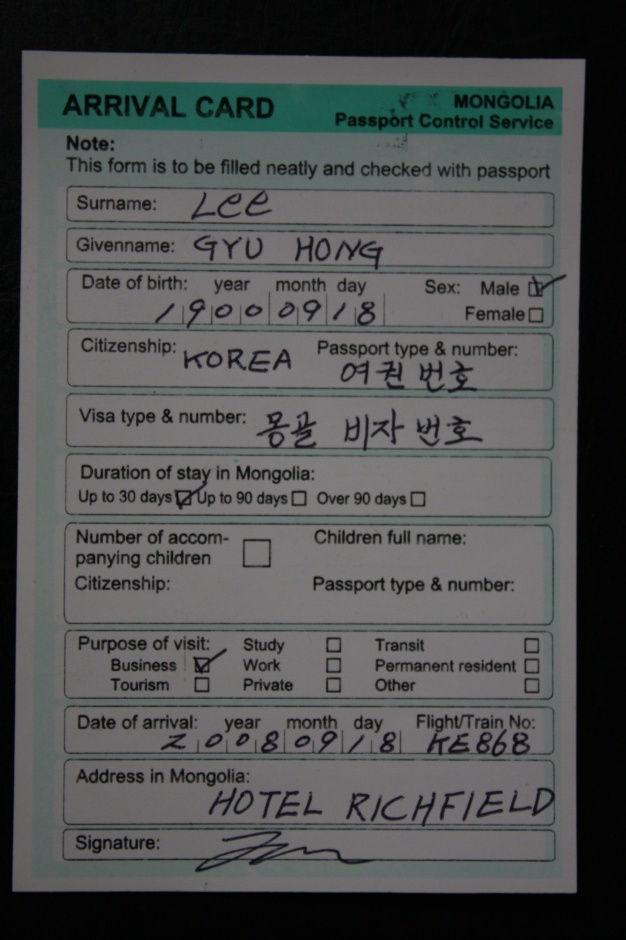 ARRIVAL CARD
MONGOLIA
Passport Control Service
Note:
This form is to be filled neatly and checked with passport
Surname: Lee
Givenname: GYU HONG
Date of birth: year month day Sex: Male
19000918 Female
Citizenship: KOREA Passport type & number:
여권 번호
Visa type & number: 몽골 비자 번호
Duration of stay in Mongolia:
Up to 30 days Up to 90 days Over 90 days
Number of accom- Children full name:
panying children
Citizenship: Passport type & number:
Purpose of visit: Study Transit
Business Work Permanent resident
Tourism Private Other
Date of arrival: year month day Flight/Train No:
20080918 KE868
Address in Mongolia:
HOTEL RICHFIELD
Signature: